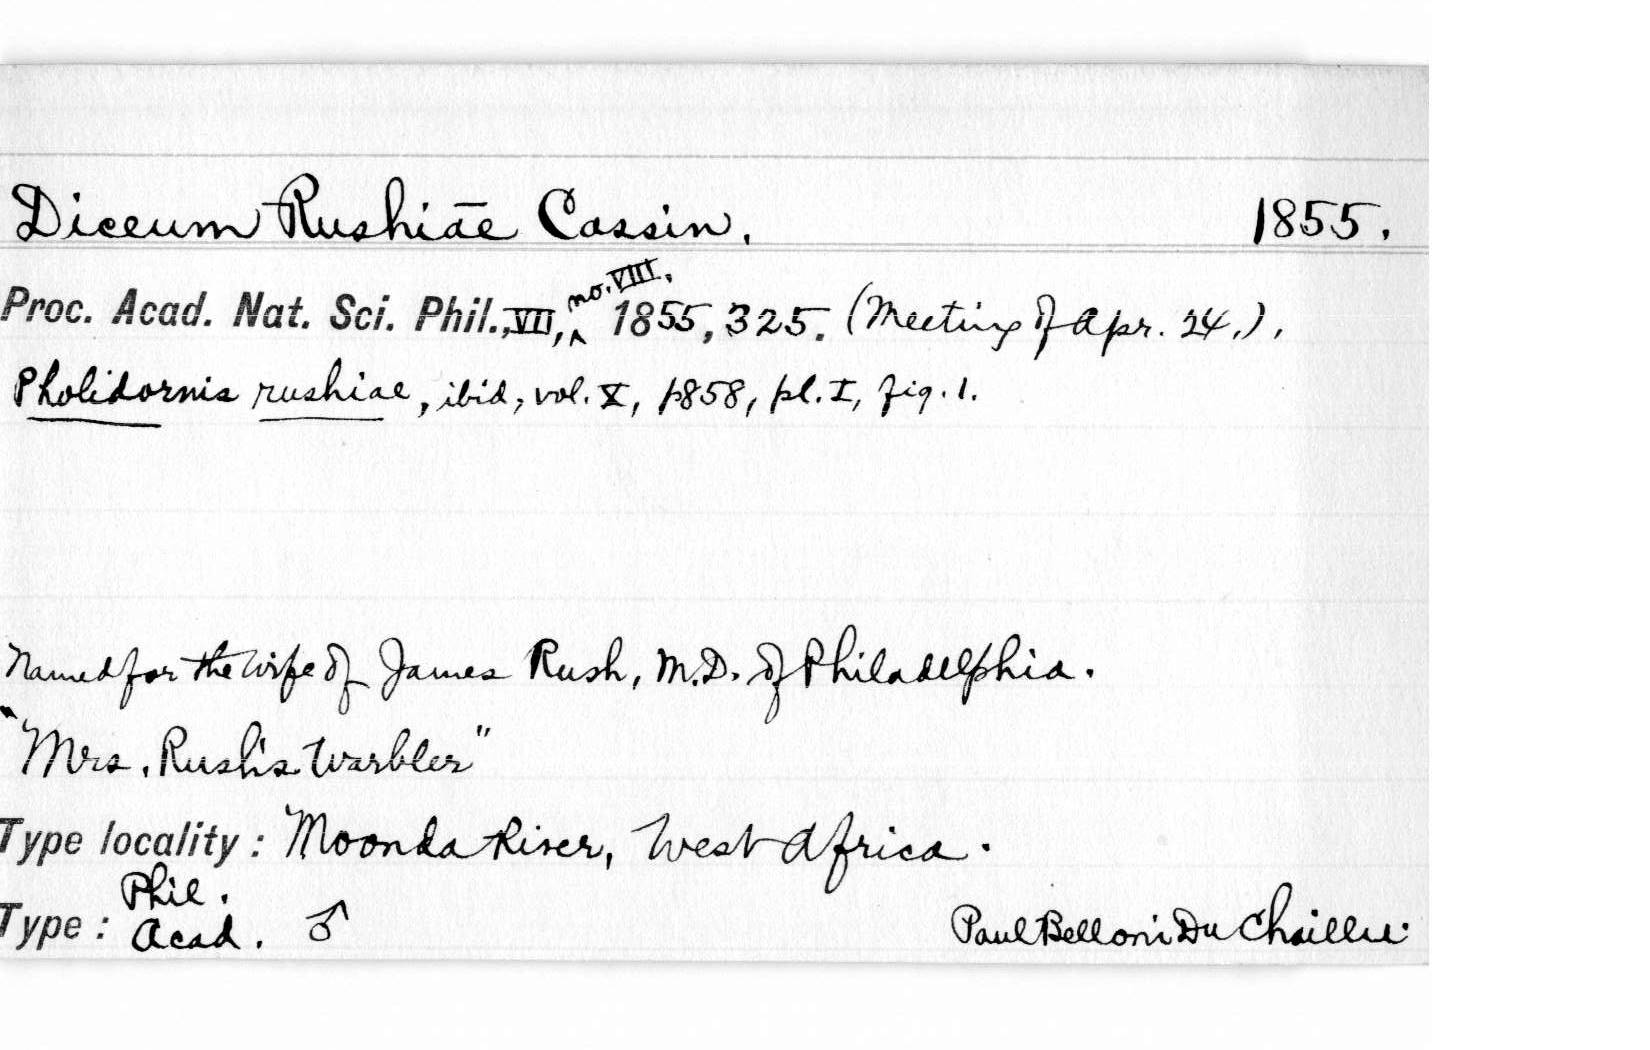 Diceum Rushiae Cassin. 1855.
Proc. Acad. Nat. Sci. Phil., VII, no. VIII. 1855, 325. (Meeting of Apr. 24.),
Pholidornis rushiae, ibid, vol. X, 1858, pl. I, fig. 1.
Named for the wife of James Rush, M.D. of Philadelphia.
"Mrs. Rush's Warbler"
Type locality: Moonda River, West Africa.
Phil.
Type: Acad. ♂ Paul Belloni Du Chaillu.